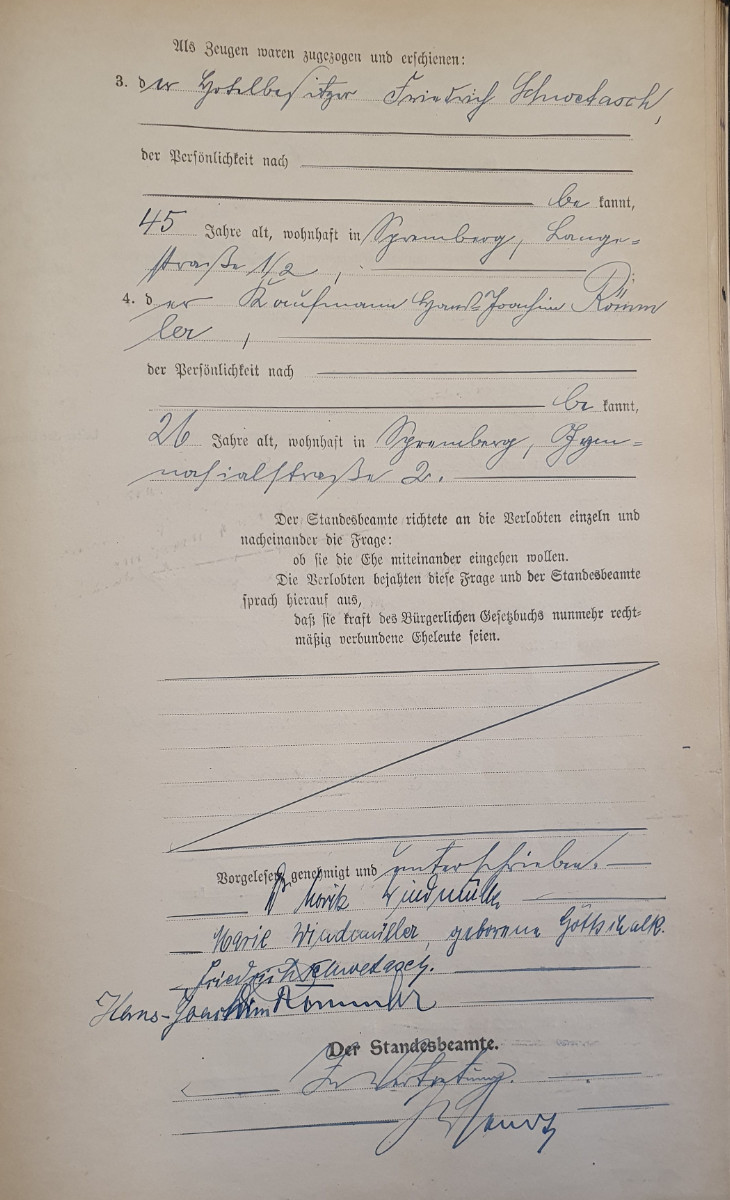 Als Zeugen waren zugezogen und erschienen:
3. der Hotelbesitzer Friedrich Schwetasch,
der Persönlichkeit nach
be kannt,
45 Jahre alt, wohnhaft in Spremberg, Lange-
straße 1/2,
4. der Kaufmann Hans-Joachim Römm
ler,
der Persönlichkeit nach
be kannt,
26 Jahre alt, wohnhaft in Spremberg, Gym-
nasialstraße 2.
Der Standesbeamte richtete an die Verlobten einzeln und
nacheinander die Frage:
ob sie die Ehe miteinander eingehen wollen.
Die Verlobten bejahten diese Frage und der Standesbeamte
sprach hierauf aus,
daß sie kraft des Bürgerlichen Gesetzbuchs nunmehr recht-
mäßig verbundene Eheleute seien.
Vorgelesen, genehmigt und unterschrieben.
Dr Moritz Windmüller
Marie Windmüller, geborene Gottschalk.
Friedrich Schwetasch.
Hans-Joachim Römmler
Der Standesbeamte.
In Vertretung.